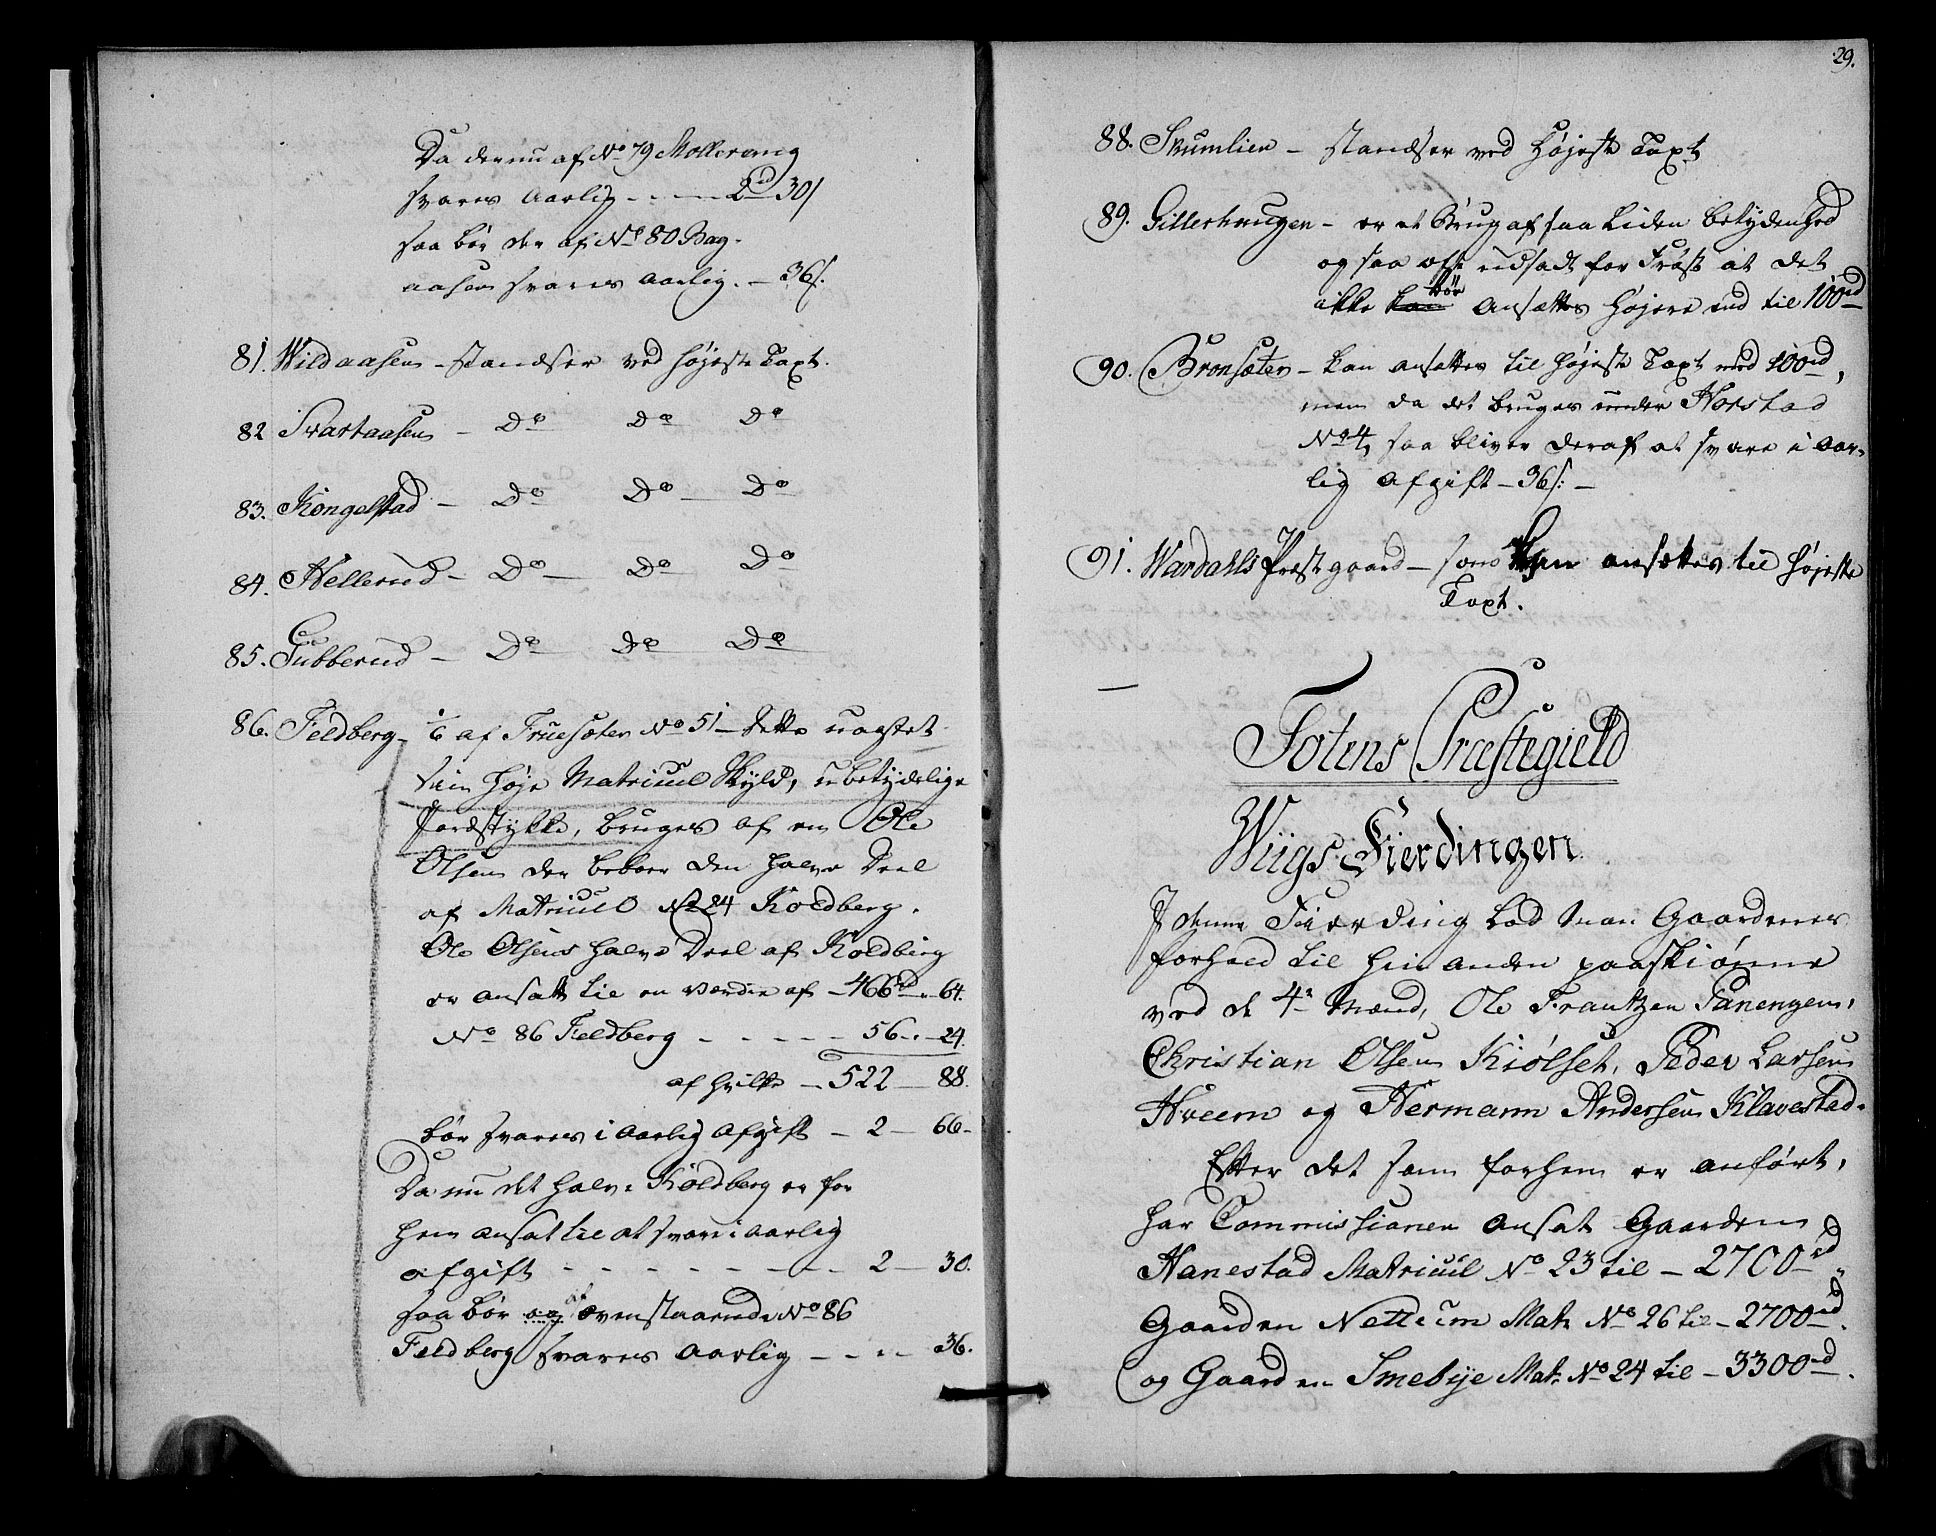 Da der nu af No 79 Mollereng
svares aarlig - - - 2rd 30s
saa bør der af No 80 Bag-
aasen svares aarlig. - 36s.
81. Wildaasen - standser ved høieste Taxt.
82 Svartaasen - Do Do Do
83. Kongelstad - Do Do - Do
84. Hellerud - Do - Do Do
85. Gubberud - Do Do Do
86. Feldberg - 1/6 af Fruesæter No 51 - dette uagtet
sin høje Matricul Skyld, ubetydelige
Jordstykke, bruges af en Ole
Olsen der beboer den halve Deel
af Matricul No 24 Koldberg.
Ole Olsens halve Deel af Koldberg
er ansatt til en værdie af - 466rd - 64.
No 86 Feldberg - - - - - 56 - 24.
af hvilke - 522 - 88.
bør svares i aarlig afgift - 2 - 66 -
Da nu det halve Koldberg er for
hen ansat til at svare i aarlig
afgift - - - - - - - 2 - 30.
saa bør og af ovenstaaende No 86
Feldberg svares aarlig - - - - 36.
29.
88. Skumlien - standser ved høieste Taxt
89. Gillerhaugen - er et Brug af saa liden betydenhed
og saa ofte udsadt for Frost at det
ikke kan bør ansættes højere end til 100rd
90. Bronsæter - kan ansættes til højeste Taxt med 100rd,
men da det bruges under Horstad
No 4, saa bliver deraf at svare i aar-
lig afgift - 36s. -
91. Wardahls Præstgaard - som ansættes til højeste
Taxt.
Totens Præstegield
Wiigs Fierdingen
I denne Fierding lod man Gaardenes
forhold til hin anden paaskiønne
ved de 4re Mænd, Ole Frantzen Panengen,
Christian Olsen Kiølset, Peder Larsen
Hveem og Hermann Andersen Klavestad.
Efter det som forhen er anført,
har Commissionen ansat Gaarden
Hanestad Matricul No 23 til - 2700rd,
Gaarden Nettum Mat: No 26 til - 2700rd.
og Gaarden Smebye Mat: No 24 til - 3300rd.